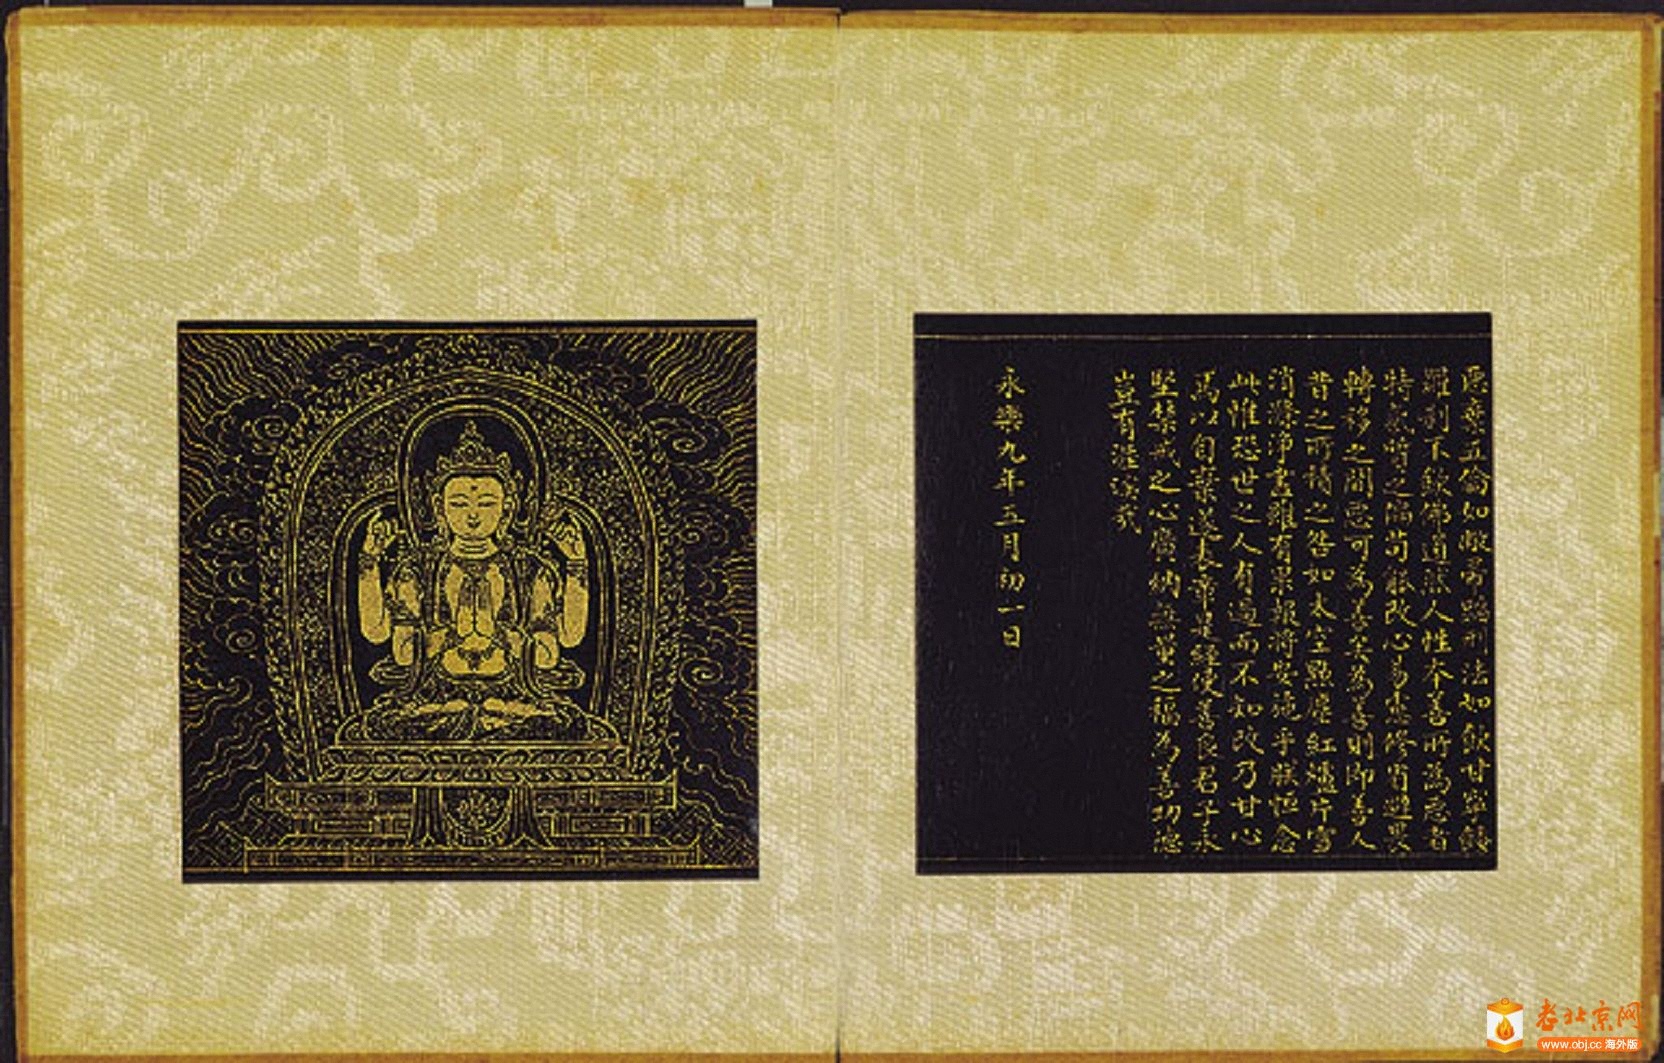 惡棄五倫如敝屣蹈刑法如飲甘寧餧
羅刹不歸佛道然人性本善所為惡者
特氣質之偏苟能改心易慮修省遷畏
轉移之間惡可為善矣為善則即善人
昔之所積之咎如太空點塵紅爐片雪
消滌淨盡雖有果報將安施乎朕恒念
此惟恐世之人有過而不知改乃甘心
焉以自棄遂表章是經使善良君子永
堅禁戒之心廣納無量之福為善功德
豈有涯涘哉
永樂九年五月初一日
老北京网
www.obj.cc 海外版